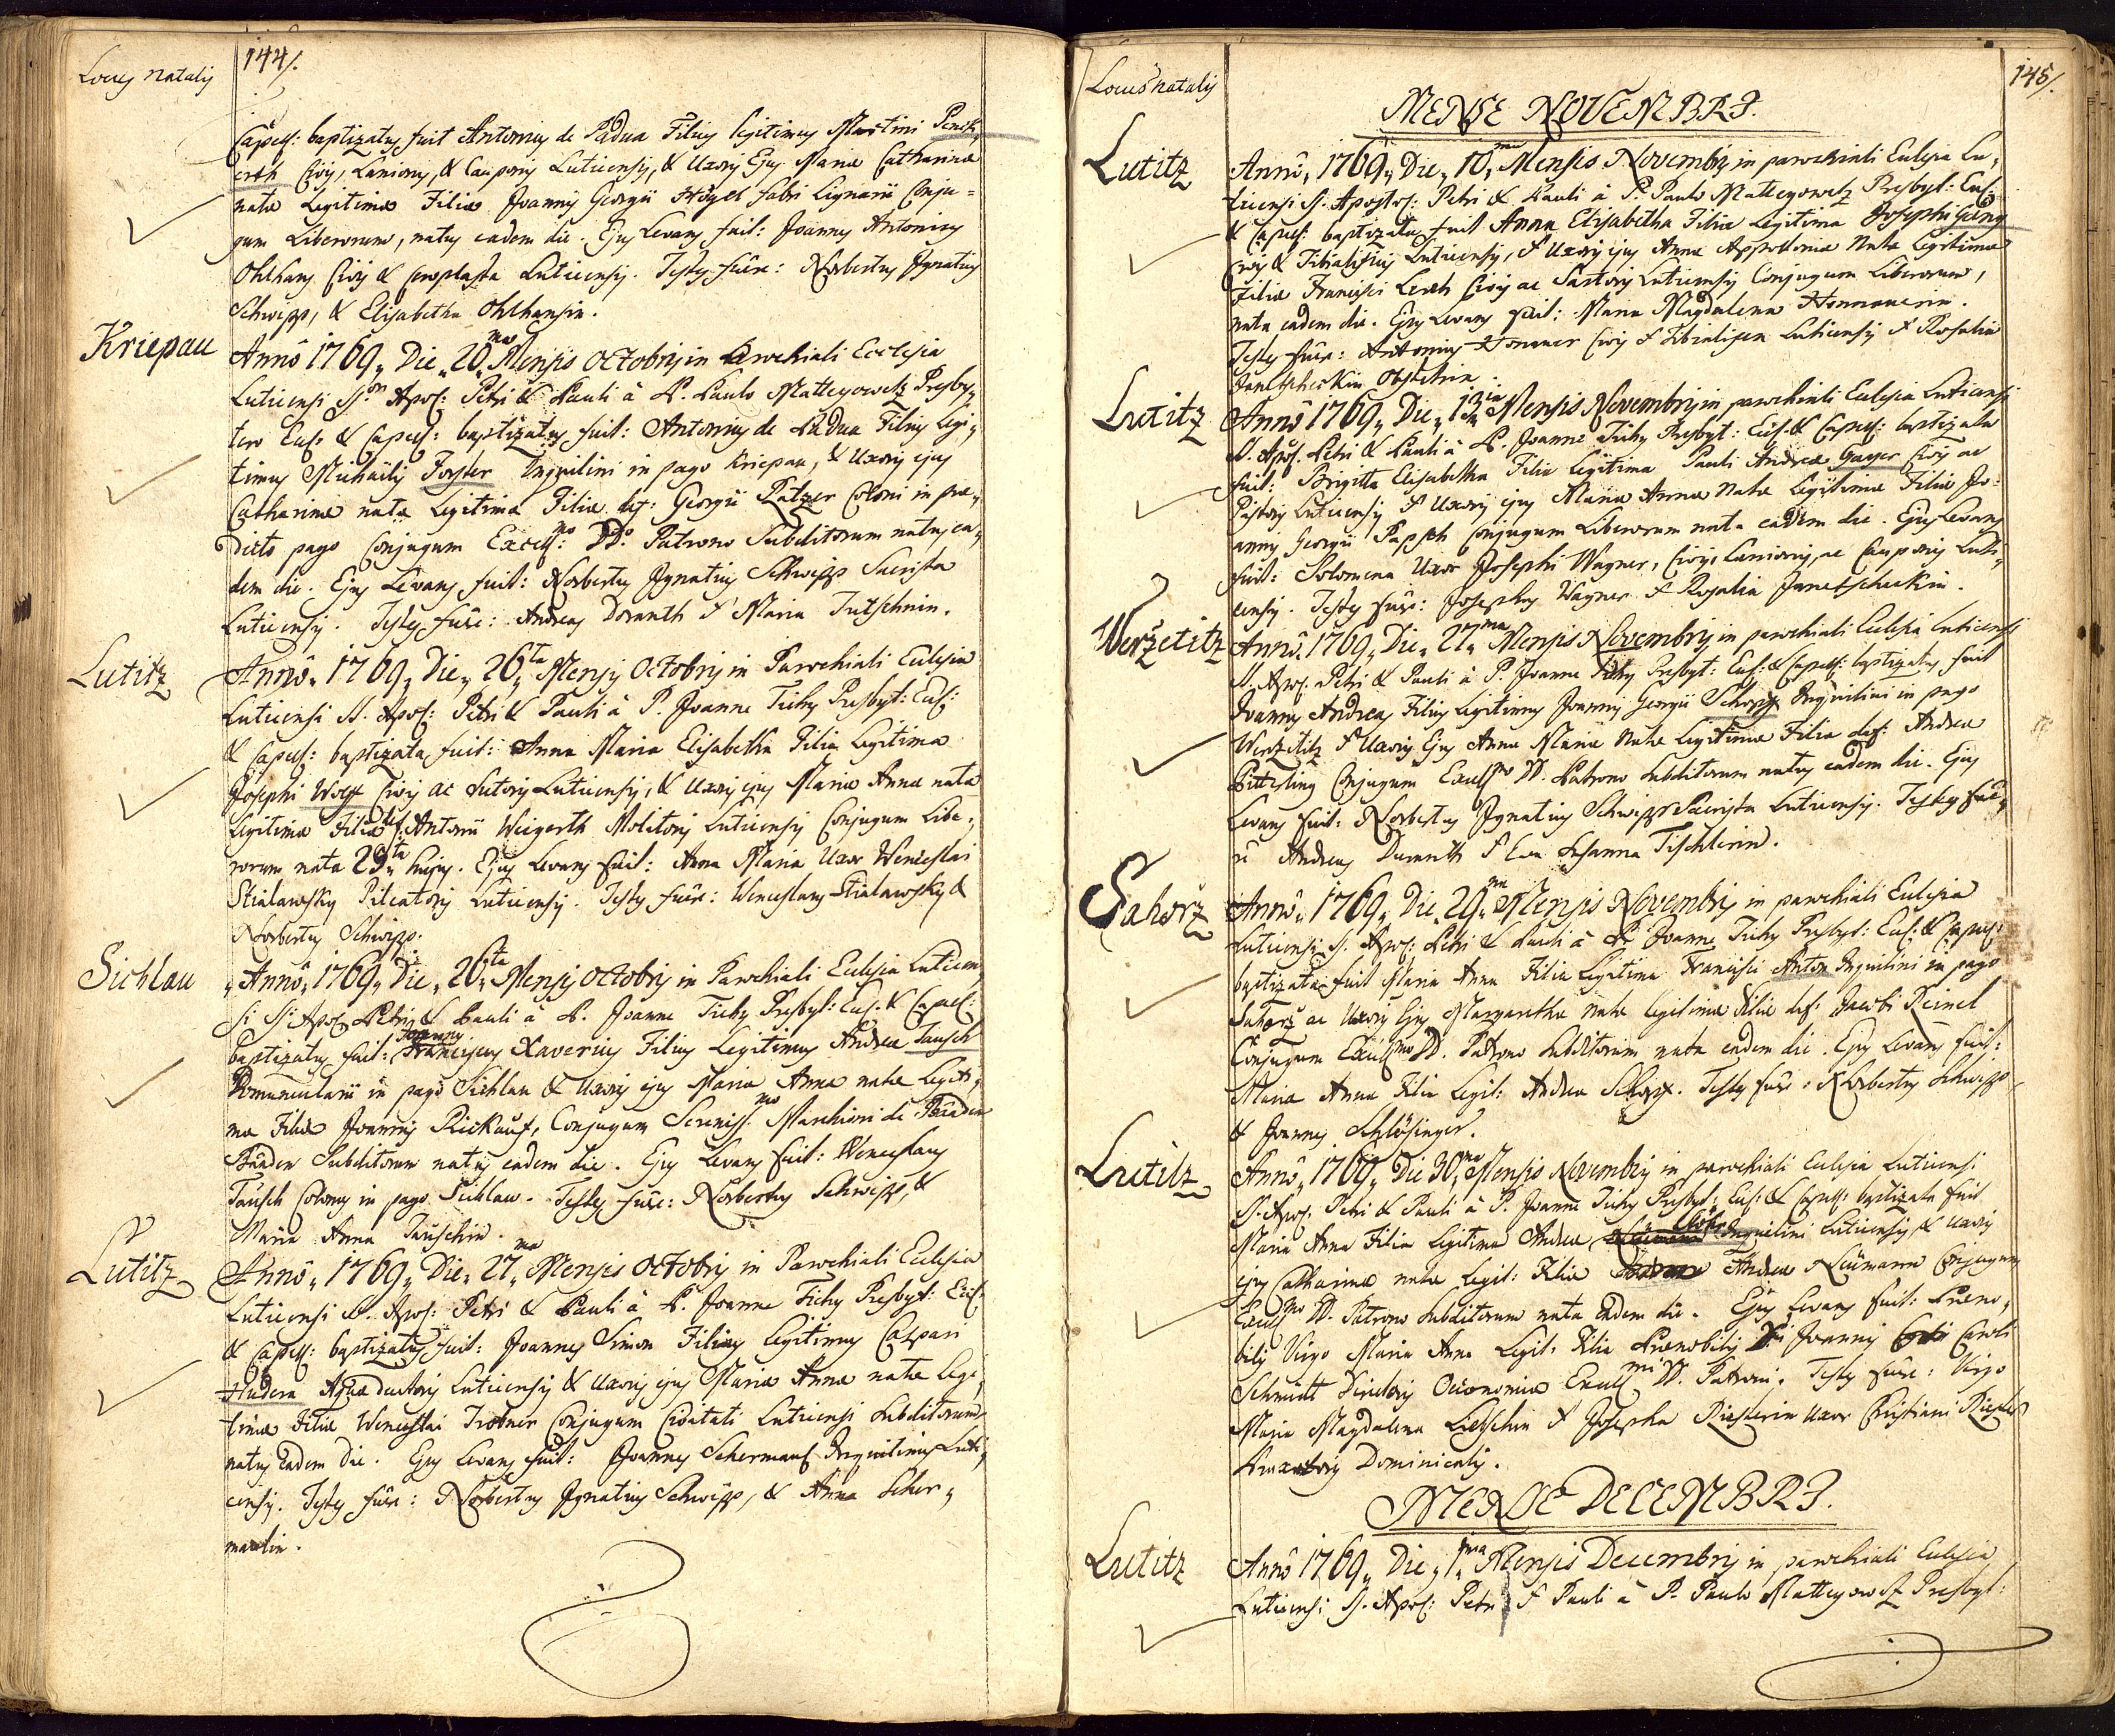 Locus natalis
144/.
Capell: baptizatus fuit Antonius de Padua Filius legitimus Martini Penck,
erth Civis, Lanionis, & Cauponis Luticensis, & Uxoris Ejus Mariæ Catharinæ
natæ Legitimæ Filiæ Joannis Georgii Högel Fabri Lignarii Conju=
gum Liberorum, natus eadem die. Ejus Levans fuit: Joannes Antonius
Ohlhans Civis & Ceroplasta Luticensis. Testes fuêre: Norbertus Ignatius
Schwipps, & Elisabetha Ohlhansin.
Kriepau
Annô 1769,, Die,, 20,,ma Mensis Octobris in Parochiali Ecclesia
Luticensi SS.or Apos: Petri & Pauli â P. Paulo Matteyowetz Presby,
tero Eccl: & Capell: baptizatus fuit: Antonius de Padua Filius Legi,
timus Michaëlis Forster Inquilini in pago Kriepau, & Uxoris ejus
Catharinæ natæ Legitimæ Filiæ def: Georgii Patzer Coloni in præ,
dicto pago Conjugum Excell:mo DD.o Patrono Subditorum natus ea,
dem die. Ejus Levans fuit: Norbertus Ignatius Schwipps Sacrista
Luticensis. Testes fuêre: Andreas Doranth & Maria Tutschnin.
Lutitz
Annô,, 1769,, Die,, 26,,ta Mensis Octobris in Parochiali Ecclesia
Luticensi SS. Apos: Petri & Pauli â P. Joanne Tichy Presbyt: Eccl:
& Capell: baptizata fuit: Anna Maria Elisabetha Filia Legitima
Josephi Wolff Civis ac Sutoris Luticensis, & Uxoris ejus Mariæ Annæ natæ
Legitimæ Filiæ def: Antonii Weigerth Molitoris Luticensis Conjugum Libe,
rorum nata 25,,ta hujus. Ejus Levans fuit: Anna Maria Uxor Wenceslai
Stialawsky Pileatoris Luticensis. Testes fuêre: Wenceslaus Stialawsky &
Norbertus Schwipps.
Sichlau
,,Annô,, 1769,, Die,, 26,,ta Mensis Octobris in Parochiali Ecclesia Luticen,
si SS: Apos: Petri & Pauli â P. Joanne Tichy Presbyt: Eccl: & Capell:
Joannes
baptizatus fuit: Franciscus Xaverius Filius Legitimus Andreæ Tausch
Domuncularii in pago Sichlau & Uxoris ejus Mariæ Annæ natæ Legiti,
mæ Filiæ Joannis Rickauf, Conjugum Sereniss:mo Marchioni de Baaden
Baaden Subditorum natus eadem die. Ejus Levans fuit: Wenceslaus
Tausch Colonus in pago Sichlau. Testes fuêre: Norbertus Schwipps, &
Maria Anna Tauschin.
Lutitz
Annô,, 1769,, Die,, 27,,ma Mensis Octobris in Parochiali Ecclesia
Luticensi SS. Apos: Petri & Pauli â P. Joanne Tichy Presbyt: Eccl:
& Capell: baptizatus fuit: Joannes Simon Filius Legitimus Caspari
Hudera Aquæductoris Luticensis & Uxoris ejus Mariæ Annæ natæ Legi,
timæ Filiæ Wenceslai Trobner Conjugum Civitati Luticensi Subditorum
natus eadem Die. Ejus Levans fuit: Joannes Schermaul Inquilinus Luti,
censis. Testes fuêre: Norbertus Ignatius Schwipps, & Anna Scher,
maulin.
Locus natalis
145/.
MENSE NOVEMBRI.
Lutitz
Annô,, 1769,, Die,, 10,,ma Mensis Novembris in parochiali Ecclesia Lu,
ticensi SS. Apostol: Petri & Pauli â P. Paulo Matteyowetz Presbyt: Eccl:
& Capell: baptizata fuit Anna Elisabetha Filia Legitima Josephi
Civis & Tibialificis Luticensis, & Uxoris ejus Annæ Appolloniæ Natæ Legitimæ
Filiæ Francisci Lerch Civis ac Sartoris Luticensis Conjugum Liberorum,
nata eadem die. Ejus Levans fuit: Maria Magdalena Hommerin.
Testes fuêre: Antonius Hommer Civis & Tibialifex Luticensis & Rosalia
Janetscheckin Obstetrix.
Lutitz
Annô 1769,, Die,, 13,,tia Mensis Novembris in parochiali Ecclesia Luticensi
SS. Apos: Petri & Pauli â P. Joanne Tichy Presbyt: Eccl: & Capell: baptizata
fuit: Brigitta Elisabetha Filia Legitima Pauli Andreæ Gayer Civis ac
Pistoris Luticensis & Uxoris ejus Mariæ Annæ Natæ Legitimæ Filiæ Jo,
annis Georgii Papsch Conjugum Liberorum nata eadem die. Ejus Levans
fuit: Solomena Uxor Josephi Wagner, Civis, Lanionis, ac Cauponis Luti,
censis. Testes fuêre: Josephus Wagner & Rosalia Janetscheckin.
Weržetitz
Annô,, 1769,, Die,, 27,,ma Mensis Novembris in parochiali Ecclesia Luticensi
SS. Apos: Petri & Pauli â P. Joanne Tichy Presbyt: Eccl: & Capell: baptizatus fuit
Joannes Andreas Filius Legitimus Joannis Georgii Schopf Inquilini in pago
Weržetitz & Uxoris Ejus Annæ Mariæ Natæ Legitimæ Filiæ def: Andreæ
Pitterling Conjugum Excell:mo DD. Patrono Subditorum natus eadem die. Ejus
Levans fuit: Norbertus Ignatius Schwipps Sacrista Luticensis. Testes fuê,
re Andreas Duranth & Eva Susanna Tischlerin.
Sahorž
Annô,, 1769,, Die,, 29,,na Mensis Novembris in parochiali Ecclesia
Luticensi SS. Apos: Petri & Pauli â P. Joanne Tichy Presbyt: Eccl: & Capell:
baptizata fuit Maria Anna Filia Legitima Francisci Anton Inquilini in pago
Sahorž ac Uxoris Ejus Margarethæ natæ legitimæ Filiæ def: Jacobi Reinel
Conjugum Excell:mo DD. Patrono Subditorum nata eadem die. Ejus Levans fuit:
Maria Anna Filia Legit: Andreæ Schopf. Testes fuêre: Norbertus Schwipps
& Joannes Schlösinger.
Lutitz
Annô,, 1769,, Die 30,,ma Mensis Novembris in parochiali Ecclesia Luticensi
SS. Apos: Petri & Pauli â P. Joanne Tichy Presbyt: Eccl: & Capell: baptizata fuit
Maria Anna Filia Legitima Andreæ Inquilini Luticensis, & Uxoris
ejus Catharinæ natæ Legit: Filiæ Andreæ Neümann Conjugum
Excell:mo DD. Patrono Subditorum nata eadem die. Ejus Levans fuit: Præno,
bilis Virgo Maria Anna Legit: Filia Prænobilis Dni Joannis Caroli
Schmidt Directoris Oeconomiæ Excell:mi DD. Patroni. Testes fuêre: Virgo
Maria Magdalena Lietschin & Josepha Riesterin Uxor Christiani Riester
Braxatoris Dominicalis.
MENSE DECEMBRI.
Lutitz
Annô 1769,, Die,, 1,,ma Mensis Decembris in parochiali Ecclesia
Luticensi SS. Apos: Petri & Pauli â P. Paulo Matteyowetz Presbyt: